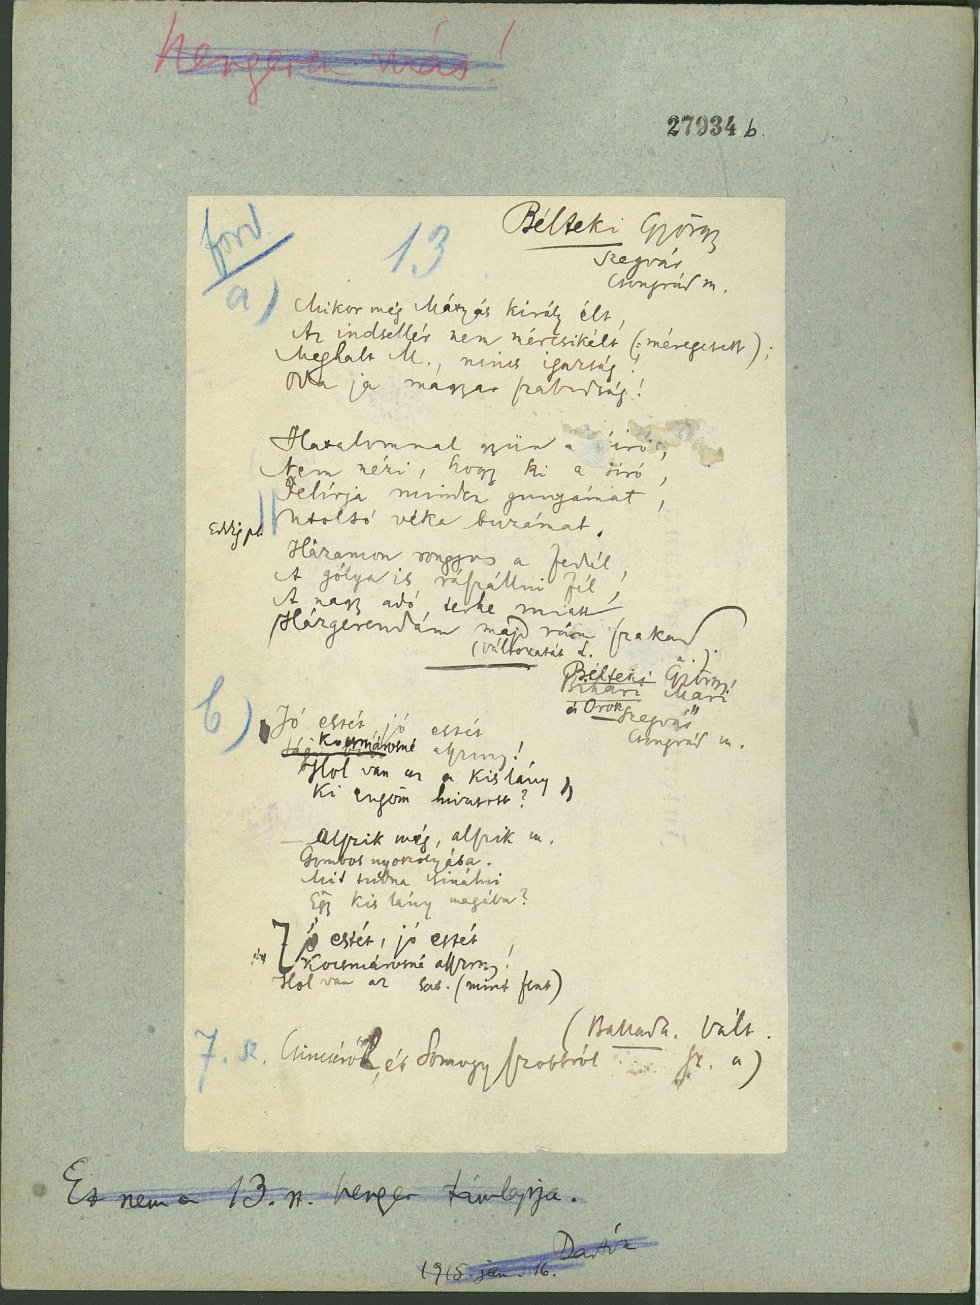 más!
27934 b
ford.
13
Bélteki György
Szegvár
Csongrád m.
a)
Mikor még Mátyás király élt,
Az indsellér nem mércsikélt (:méregetett);
Meghalt M., nincs igazság!
Oda ja magyar szabadság!
Hatalommal gyün a biró,
Nem nézi, hogy ki a siró,
Felírja minden gunyámat,
Utolsó véka buzámat.
Eddig ph.
Házamon rongyos a fedél,
A gólya is rászállni fél,
A nagy adó terhe miatt
Házgerendám majd rám szakad
(változatát l. a.).
Bélteki György
Bihari Mari
és Orok
Szegvár
Csongrád m.
b)
Jó estét jó estét
Kocsmárosné asszony!
Hol van az a kis lány,
Ki engöm hivatott?
Alszik még, alszik m.
Gombos nyoszolyába.
Mit tudna csinálni
Egy kis lány magába?
Jó estét, jó estét
Kocsmárosné asszony!
Hol van az sat. (mint fent)
(Ballada. Vált.
7. sz. és Somogy sz. a)
Ez nem a 13. sz. henger támlapja.
1915. jan. 16.